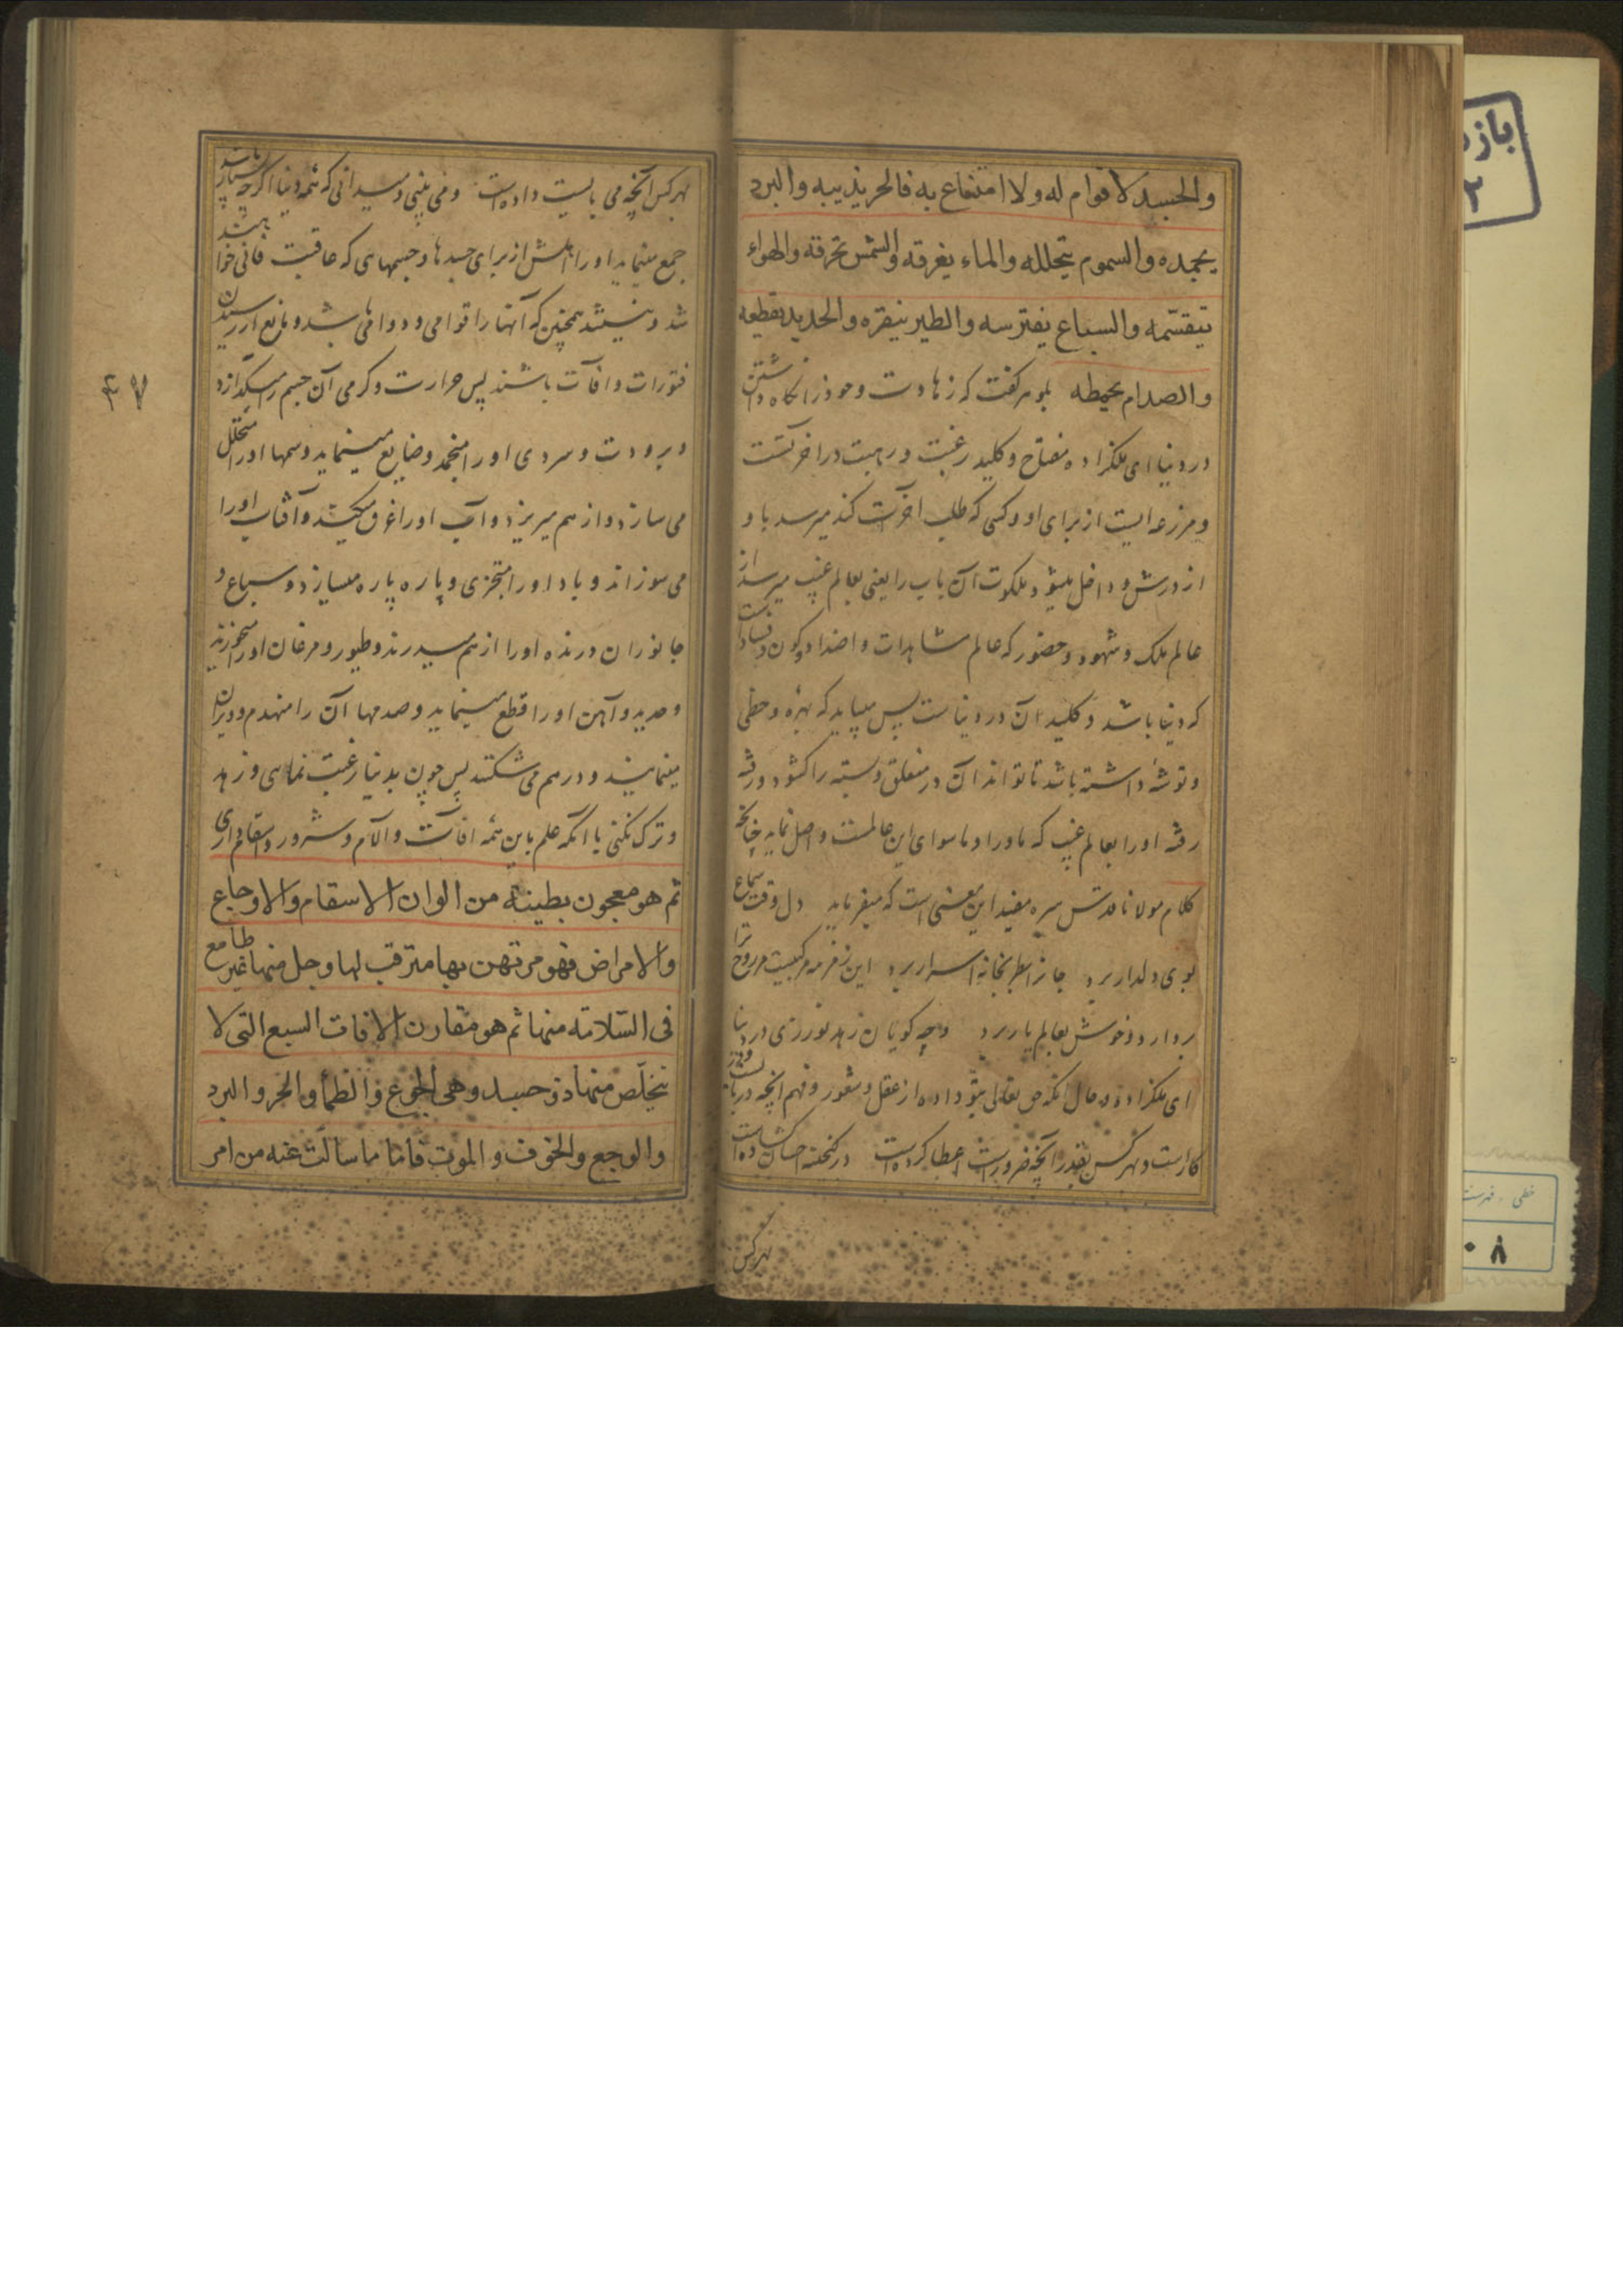 والجسد لا قوام له ولا امتناع به فالحر يذيبه والبرد
يجمده والسموم يتحلله والماء يغرقه والشمس تحرقه والهواء
يتقسمه والسباع يفترسه والطير ينقره والحديد يقطعه
والصدام يحطمه بلوهر گفت که زهادت و خود را نگاه داشتن
در دنیا ای ملکزاده مفتاح و کلید رغبت و رهبت در آخرتست
و مزرعه ایست از برای او و کسی که طلب آخرت کند میرسد باو
از درش و داخل میشود ملکوت آن باب را یعنی بعالم غیب میرسد از
عالم ملک و شهود و حضور که عالم مشاهدات و اضداد و کون و فساد است
که دنیا باشد و کلید آن در دنیاست پس میباید که بهره و حظی
و توشهٔ داشته باشد تا تواند آن در مغلق و بسته را گشود و رفته
رفته او را بعالم غیب که ماورا و ماسوای این عالمست واصل نماید چنانکه
کلام مولانا قدس سره مفید این معنی است که میفرماید دل وقت سماع
بوی دلدار برد جانرا بسراپردهٔ اسرار برد این زمزمه مرکبیست مر روح ترا
بردارد و خوش بعالم یار برد و چه گویا ن زهد نورزی در دنیا
ای ملکزاده و حال آنکه حق تعالی بتو داده از عقل و شعور و فهم آنچه در
کار است و بهر کس بقدر آنچه ضرور است اعطا کرده است در گنجینه احسان گشاده است
بهر کس
بهر کس آنچه می بایست داده است و می بینی و میدانی که همه دنیا اگر چه بسیار باشد
جمع مینماید او را اهلش از برای جسدها و جسمهای که عاقبت فانی خواهند
شد و نیستند همچنین که آنها را قوامی و دوامی باشد و مانع از رسیدن
فتورات و آفات باشند پس حرارت و گرمی آن جسم را میگدازد
و برودت و سردی او را منجمد و ضایع مینماید و سمها او را متحلل
می سازد و از هم میریزد و آب او را غرق میکند و آفتاب او را
می سوزاند و باد او را متجزی و پاره پاره میسازد و سباع و
جانوران درنده او را از هم میدرند و طیور و مرغان او را میخورند
و حدید و آهن او را قطع مینماید و صدمها آن را منهدم و ویران
مینمایند و درهم می شکنند پس چون بدنیا رغبت نمائی و زهد
و ترک نکنی با آنکه علم باین همه آفات و آلام و شرور و اسقام داری
ثم هو معجون بطينة من الوان الاسقام والاوجاع
والامراض فهو مرتهن بها مترقب لها وجل منها غير طامع
فى السلامة منها ثم هو مقارن الافات السبع التى لا
يتخلص منها ذو جسد وهى الجوع والظمأ والحر والبرد
والوجع والخوف والموت فاما ما سالت عنه من امر
۴۷